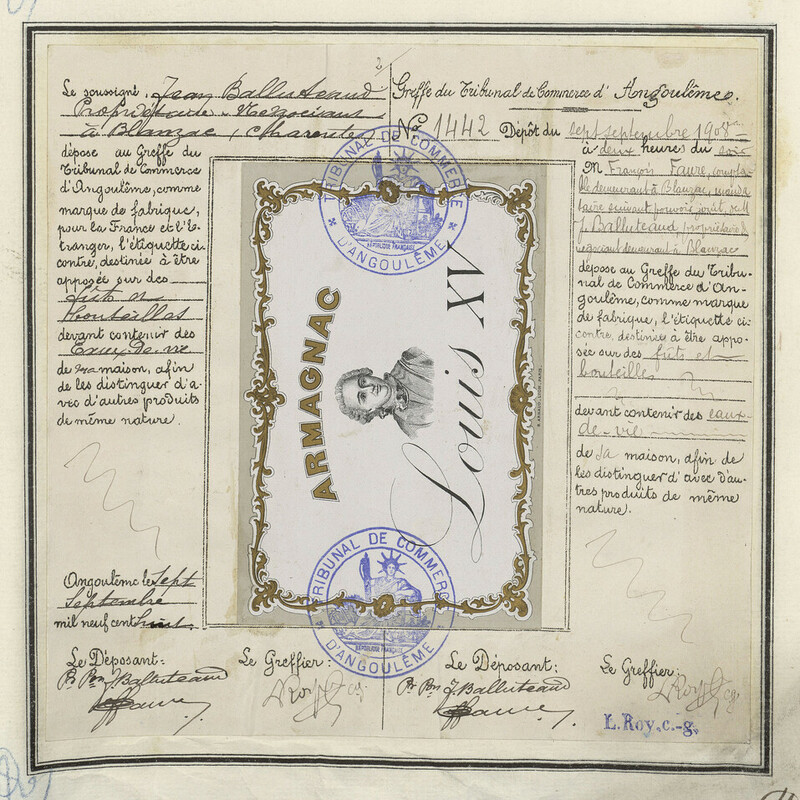 2
Le soussigné, Jean Balluteaud
Propriétaire - Négociant
à Blanzac (Charente)
dépose au Greffe du
Tribunal de Commerce
d'Angoulême, comme
marque de fabrique,
pour la France et l'É-
tranger, l'étiquette ci-
contre, destinée à être
apposée sur des
fûts
bouteilles
devant contenir des
Eaux-de-vie
de ma maison, afin
de les distinguer d'a-
vec d'autres produits
de même nature.
Angoulême le Sept
Septembre
mil neuf cent huit.
Greffe du Tribunal de Commerce d'Angoulême.
No 1442 Dépôt du sept septembre 1908
à deux heures du soir
M François Faure,
demeurant à Blanzac, manda-
taire suivant pouvoir joint, de M
J. Balluteaud propriétaire &
négociant demeurant à Blanzac
dépose au Greffe du Tribu-
nal de Commerce d'An-
goulême, comme marque
de fabrique, l'étiquette ci-
contre, destinée à être appo-
sée sur des fûts et
bouteilles
devant contenir des eaux-
de-vie
de sa maison, afin de
les distinguer d'avec d'au-
tres produits de même
nature.
TRIBUNAL DE COMMERCE
D'ANGOULÊME
RÉPUBLIQUE FRANÇAISE
ARMAGNAC
Louis XV
TRIBUNAL DE COMMERCE
D'ANGOULÊME
RÉPUBLIQUE FRANÇAISE
Le Déposant: Le Greffier: Le Déposant: Le Greffier:
Pr Pon J. Balluteaud LRoy cg. Pr Pon J. Balluteaud LRoy cg.
Faure Faure
L. Roy. c.-g.